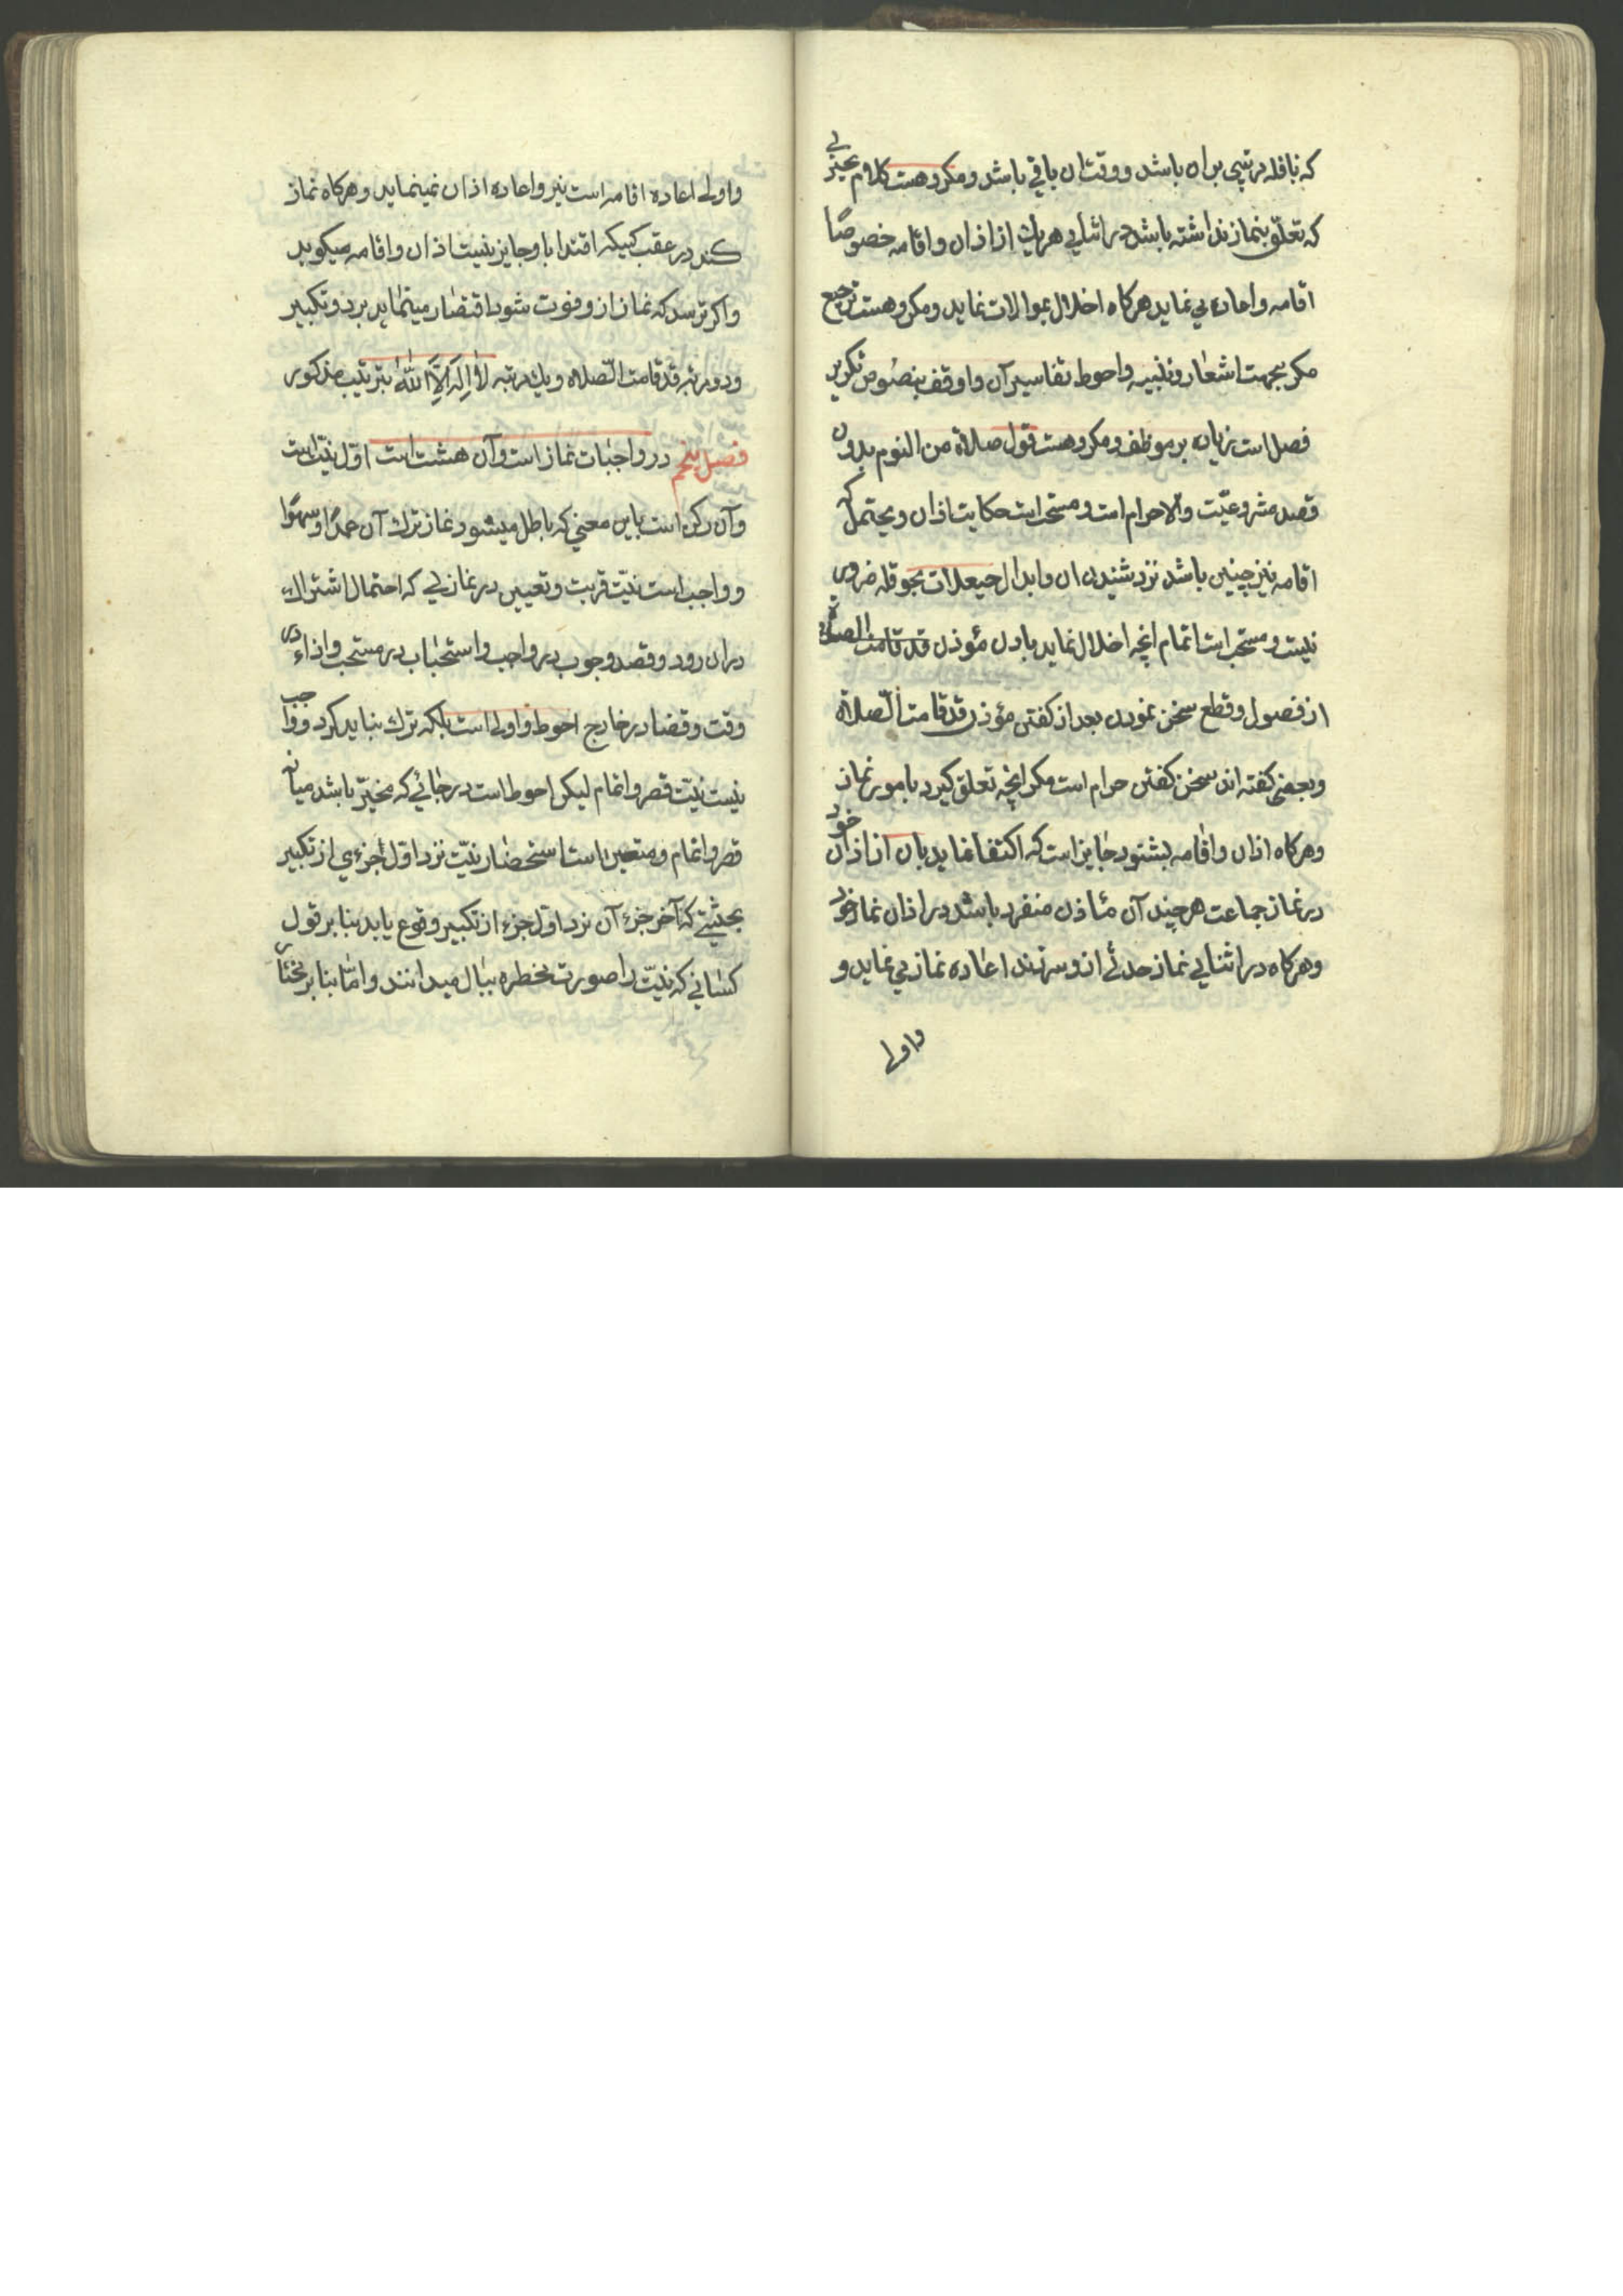 که نافله مرتبی بران باشد و وقت ان باقی باشد و مکروهست کلام بچیزی
که تعلّق بنماز نداشته باشد در اثنای هر یك از اذان و اقامه خصوصًا
اقامه و اعاده می نماید هرکاه اخلال بموالات نماید و مکروهست ترجیع
مکر بجهت اشعار و تنبیه و احوط تفاسیر آن و اوفق بنصوص تکریر
فصل است زیاده بر موظف و مکروهست قول صلاة من النوم بدون
قصد مشروعیّت و الا حرام است و مستحب است حکایت اذان و یحتمل که
اقامه نیز چنین باشد نزد شنیدن ان و ابدال حیعلات بحوقله ضروری
نیست و مستحب است اتمام انچه اخلال نماید بان مؤذن قد قامت الصلاة
از فصول و قطع سخن نمودن بعد از کفتن مؤذن قد قامت الصّلاة
و بعضی کفته اند سخن کفتن حرام است مکر انچه تعلق کیرد بامور نماز
و هرکاه اذان و اقامه بشنود جایز است که اکتفا نماید بان از اذان خود
در نماز جماعت هرچند آن مئاذن منفرد باشد در اذان نماز خود
و هرکاه در اثنای نماز حدثی ازو سر زند اعاده نماز می نماید و
و اولی
و اولی اعاده اقامه است نیز و اعاده اذان نمینماید و هرکاه نماز
کند در عقب کسیکه اقتدا باو جایز نیست اذان و اقامه میکوید
و اکر ترسد که نماز ازو فوت شود اقتصار مینماید بر دو تکبیر
و دو مرتبه قد قامت الصّلاة و یك مرتبه لا اله الا الله بترتیب مذکور
فصل پنجم در واجبات نماز است و آن هشت است اوّل نیّت است
و آن رکن است باین معنی که باطل میشود نماز بترك آن عمدًا و سهوًا
و واجب است نیّت قربت و تعیین در نمازی که احتمال اشتراك
دران رود و قصد وجوب در واجب و استحباب در مستحب و اداء در
وقت و قضا در خارج احوط و اولی است بلکه ترك نباید کرد و واجب
نیست نیّت قصر و اتمام لیکن احوط است در جائی که مخیّر باشد میانه
قصر و اتمام و متعین است استحضار نیّت نزد اوّل جزءی از تکبیر
بحیثیتی که آخر جزء آن نزد اوّل جزء از تکبیر وقوع یابد بنا بر قول
کسانی که نیّت را صورت مخطره ببال میدانند و امّا بنا بر مختار